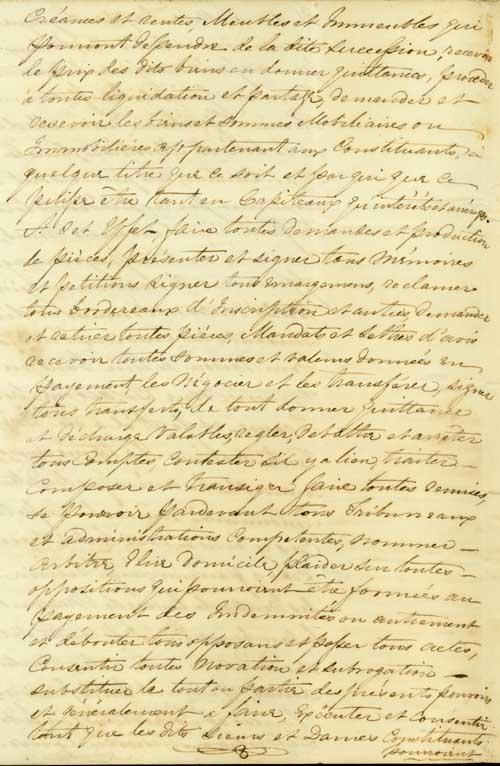 Créances et rentes Meubles et Immeubles qui
pourront dépendre de la dite succession, recevoir
le prix des dits biens en donner quittances, procéder
à toutes liquidation et partage, demander et
recevoir les biens et sommes Mobiliaires ou
Immobilières appartenant aux Constituants, à
quelque titre que ce soit et par qui que ce
puisse être tant en Capiteaux qu'intérêts et arrérages.
A cet Effet, faire toutes demandes et production
de pièces, présenter et signer tous Mémoires
et pétitions signer tous émargemens, réclamer
tous bordereaux d'Inscription et autres, demander
et retirer toutes pièces, Mandats et Lettres d'avis
recevoir toutes sommes et valeurs données en
payement, les Négocier et les transférer, signer
tous transferts, de tout donner quittance
et décharge Valables, regler, debattre et arrêter
tous Comptes, contester s'il y a lien, traiter
Composer et transiger, faire toutes remises,
se pourvoir pardevant tous Tribuneaux
et administrations Competentes, nommer
arbitre, Elire domicile, plaider sur toutes
oppositions qui pourroient être formées au
payement des Indemnités ou autrement
et debouter tous opposans et passer tous actes,
Consentir toutes Novation et subrogation
substituer le tout ou partie des présents pouvoirs
et généralement faire, Exécuter et consentir
tout que les dits Sieurs et Dames Constituants
pourroient